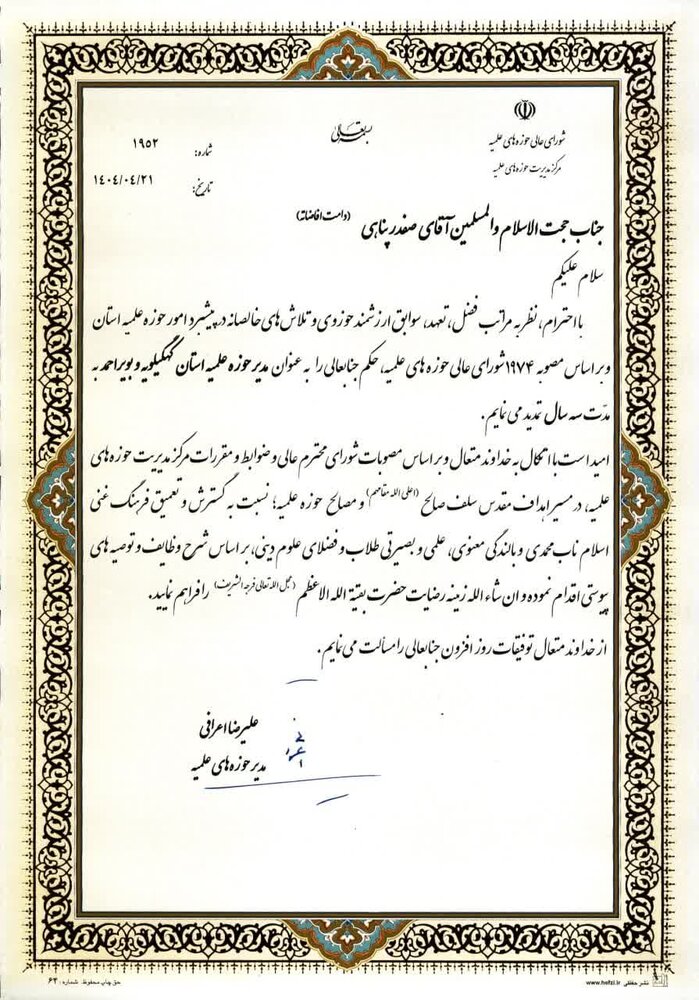 بسمه تعالی
شورای عالی حوزه های علمیه
مرکز مدیریت حوزه های علمیه
شماره: ۱۹۵۲
تاریخ: ۱۴۰۴/۰۴/۲۱
جناب حجت الاسلام والمسلمین آقای صفدر پناهی (دامت افاضاته)
سلام علیکم
با احترام، نظر به مراتب فضل، تعهد، سوابق ارزشمند حوزوی و تلاش های خالصانه در پیشبرد امور حوزه علمیه استان
و بر اساس مصوبه ۱۹۷۴ شورای عالی حوزه های علمیه، حکم جنابعالی را به عنوان مدیر حوزه علمیه استان کهگیلویه و بویراحمد به
مدّت سه سال تمدید می نمایم.
امید است با اتکال به خداوند متعال و بر اساس مصوبات شورای محترم عالی و ضوابط و مقررات مرکز مدیریت حوزه های
علمیه، در مسیر اهداف مقدس سلف صالح (اعلی الله مقامهم) و مصالح حوزه علمیه؛ نسبت به گسترش و تعمیق فرهنگ غنی
اسلام ناب محمدی و بالندگی معنوی، علمی و بصیرتی طلاب و فضلای علوم دینی، بر اساس شرح وظایف و توصیه های
پیوستی اقدام نموده و ان شاء الله زمینه رضایت حضرت بقیة الله الاعظم (عجل الله تعالی فرجه الشریف) را فراهم نمایید.
از خداوند متعال توفیقات روز افزون جنابعالی را مسألت می نمایم.
علیرضا اعرافی
مدیر حوزه های علمیه
نشر حفظی www.hefzi.ir
حق چاپ محفوظ شماره: ۶۲